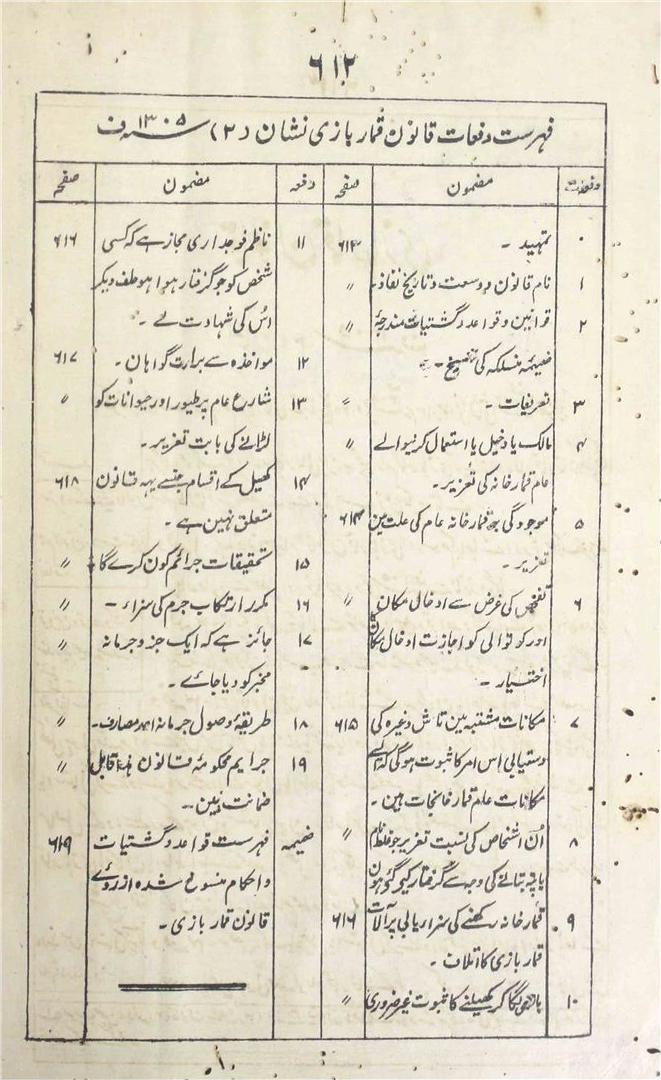 ۶۱۲
فہرست دفعات قانون قمار بازی نشان (۲) ۱۳۰۵ سنہ ف
دفعہ مضمون صفحہ
۰ تمہید ۔ ۶۱۳
۱ نام قانون و وسعت و تاریخ نفاذ ۔ 〃
۲ قوانین و قواعد و گشتیات مندرجۂ 〃
ضمیمہ منسلکہ کی تنسیخ ۔
۳ تعریفات ۔ 〃
۴ مالک یا دخیل یا استعمال کرنیوالے 〃
عام قمار خانہ کی تعزیر ۔
۵ موجودگی بہ قمار خانہ عام کی علت مین ۶۱۴
تعزیر ۔
۶ تفحص کی غرض سے ادخال مکان 〃
اور کوتوالی کو اجازت ادخال مکان کا
اختیار ۔
۷ مکانات مشتبہ مین تاش وغیرہ کی ۶۱۵
دستیابی اس امر کا ثبوت ہوگی کہ ایسے
مکانات عام قمار خانجات ہین ۔
۸ اُن اشخاص کی نسبت تعزیر جو غلط نام 〃
یا پتہ بتانے کی وجہ سے گرفتار کیے گئے ہون
۹ قمار خانہ رکھنے کی سزا یابی پر آلات ۶۱۶
قمار بازی کا اتلاف ۔
۱۰ بازی لگا کر کھیلنے کا ثبوت غیر ضروری 〃
دفعہ مضمون صفحہ
۱۱ ناظم فوجداری مجاز ہے کہ کسی ۶۱۶
شخص کو جو گرفتار ہوا ہو حلف دیکر
اُس کی شہادت لے ۔
۱۲ مواخذہ سے برارت گواہان ۔ ۶۱۷
۱۳ شارع عام پر طیور اور حیوانات کو 〃
لڑانے کی بابت تعزیر ۔
۱۴ کھیل کے اقسام جنسے یہہ قانون ۶۱۸
متعلق نہین ہے ۔
۱۵ تحقیقات جرائم کون کرے گا 〃
۱۶ مکرر ارتکاب جرم کی سزاء ۔ 〃
۱۷ جائز ہے کہ ایک جزو جرمانہ 〃
مخبر کو دیا جائے ۔
۱۸ طریقۂ وصول جرمانہ اور مصارف ۔ 〃
۱۹ جرایم محکومہ قانون ہذا قابل 〃
ضمانت ہین ۔
ضمیمہ فہرست قواعد و گشتیات ۶۱۹
و احکام منسوخ شدہ از روئے
قانون قمار بازی ۔